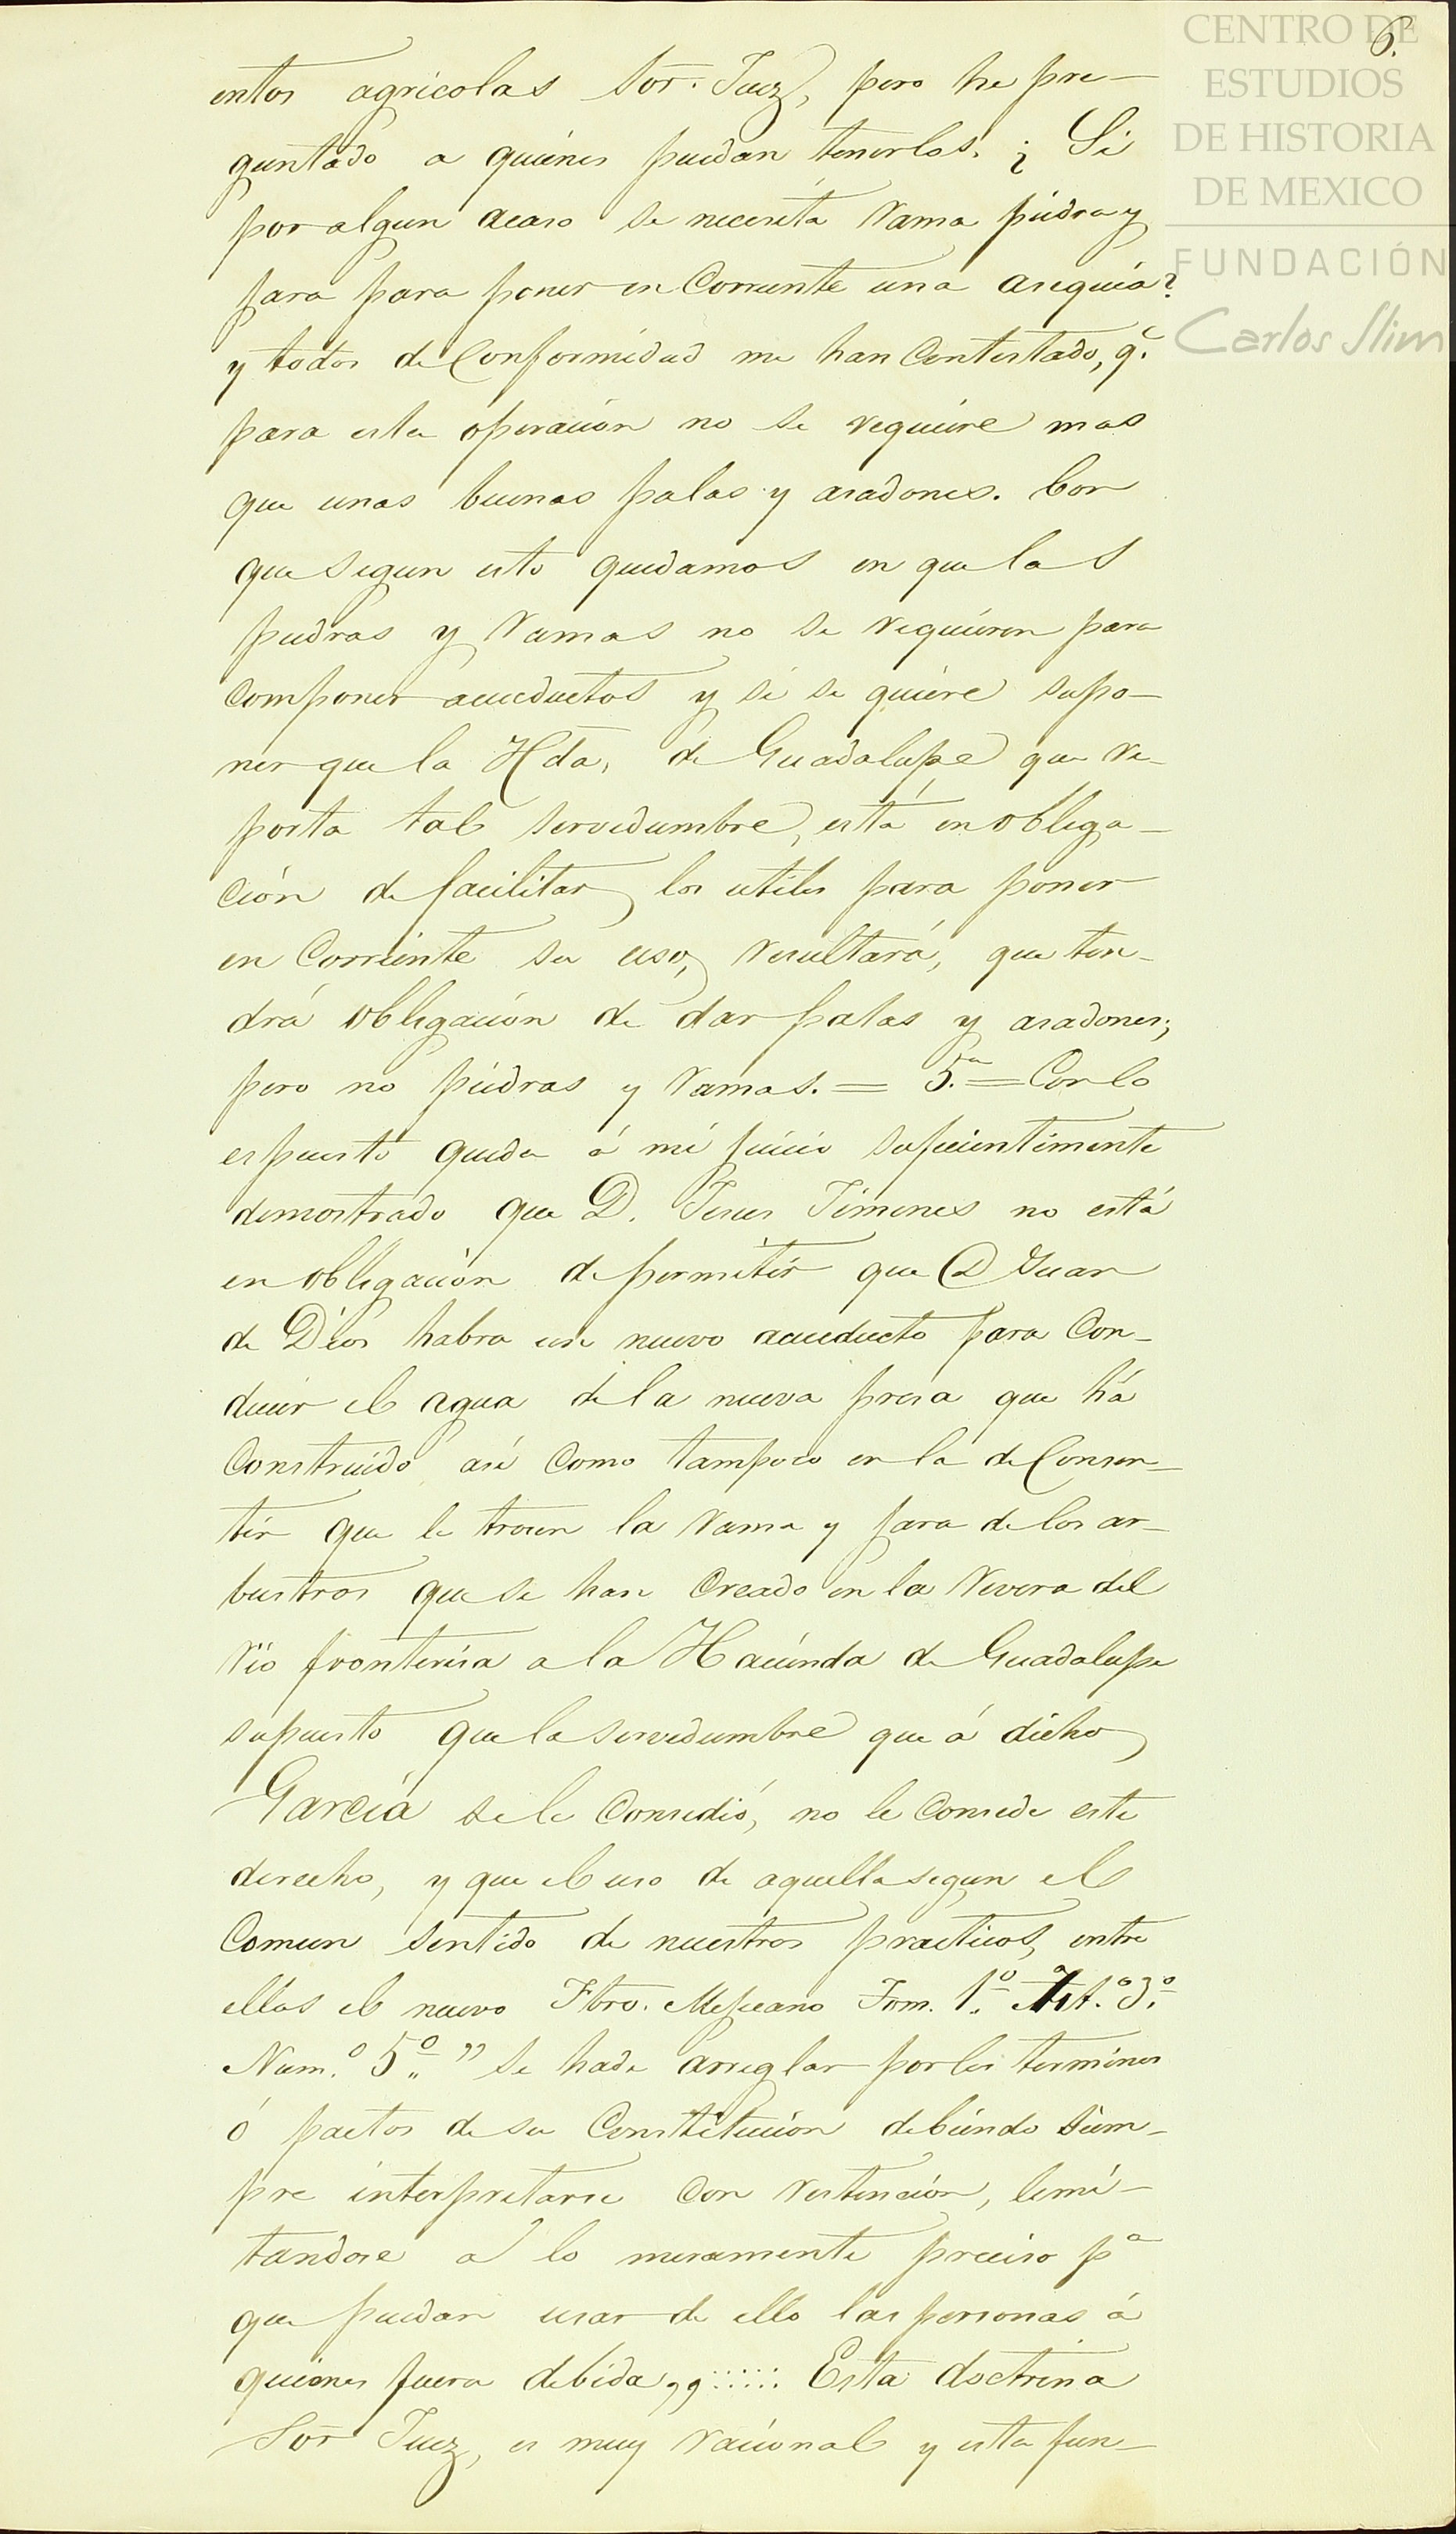 CENTRO DE
ESTUDIOS
DE HISTORIA
DE MEXICO
FUNDACIÓN
Carlos Slim
6.
entos agricolas Sor. Juez, pero he pre-
guntado a quiénes puedan tenerlos. ¿Si
por algun acaso se necesita rama piedra y
jara para poner en Corriente una asequia?
y todos de Conformidad me han Contestado, q.e
para esta operación no se requiere mas
que unas buenas palas y asadones. Con
que segun esto quedamos en que las
piedras y ramas no se requieren para
componer acueductos y si se quiere supo-
ner que la Hda. de Guadalupe que re-
porta tal servidumbre, está en obliga-
ción de facilitar los utiles para poner
en Corriente su uso, resultará, que ten-
drá obligación de dar palas y asadones;
pero no piedras y ramas. = 5.a = Con lo
espuesto queda á mi juicio suficientemente
demostrado que D. Jesus Jimenes no está
en obligación de permitir que D Juan
de Dios habra un nuevo acueducto para Con-
ducir el agua de la nueva presa que há
Construido asi como tampoco en la de Consen-
tir que le trocen la rama y jara de los ar-
bustros que se han Creado en la rivera del
río fronterisa a la Hacienda de Guadalupe
supuesto que la servidumbre que á dicho
García se le Consedió, no le Consede este
derecho, y que el uso de aquella segun el
Comun sentido de nuestros practicos, entre
ellos el nuevo Fbro. Mejicano Tom. 1.º Tit.º 3.º
Num.º 5.º " se ha de arreglar por los terminos
ó pactos de su Constitución debiendo siem-
pre interpretarse con restinción, limi-
tandose a lo meramente preciso pa
que puedan usar de ello las personas á
quienes fuera debida,, :::::: Esta doctrina
Sor Juez, es muy racional y esta fun-